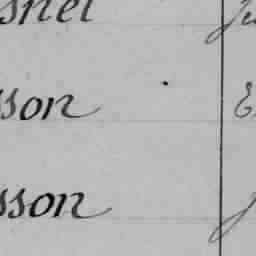 snel
sson E
sson